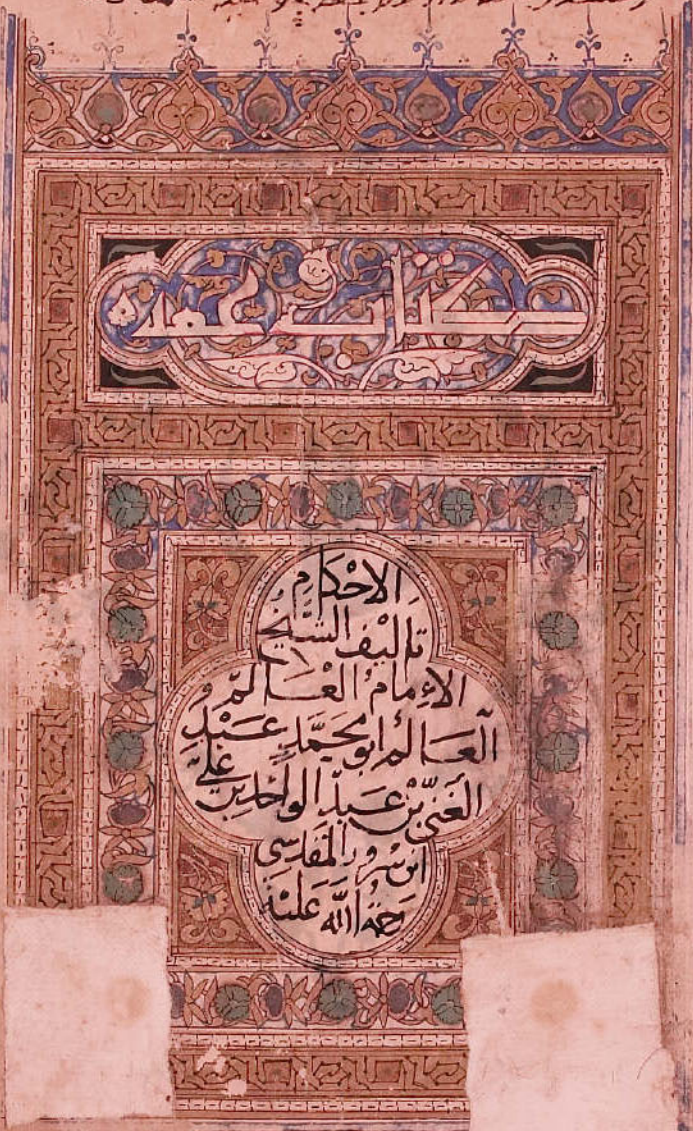 كتاب عمدة
الاحْكَام
تَاليْف الشَّيْخ
الاِمَام العَالم
العَالم ابو محَمَّد عَبْد
الغَنيّ بْن عَبد الواحِد بن عَليّ
ابن سُرُور المقَدسِي
رَحمَة اللَّه عَليْه